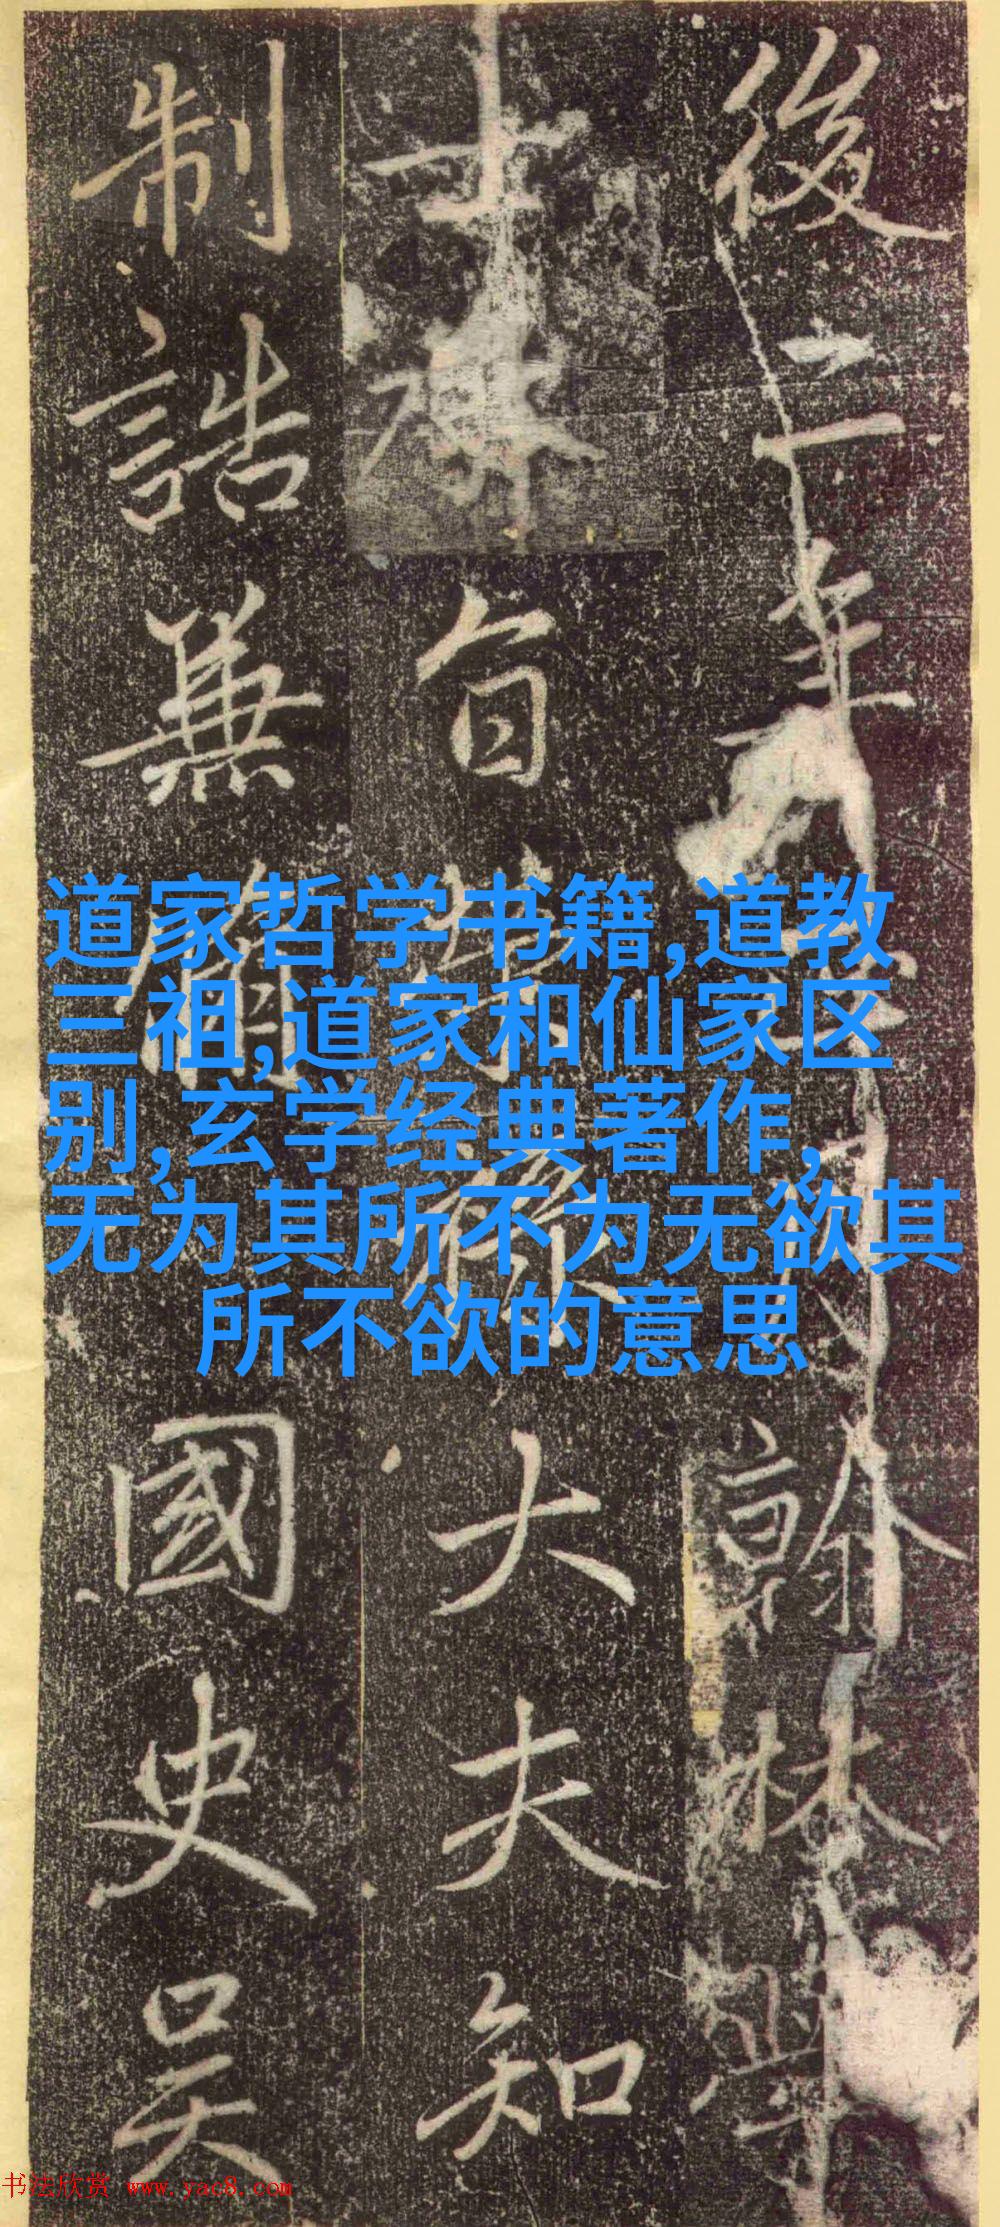 後二年
翰林學
士
旨
大夫知
制誥兼
國史吴
道家哲学书籍,道教
三祖,道家和仙家区
别,玄学经典著作,
无为其所不为无欲其
所不欲的意思
书法欣赏 www.yac8.com